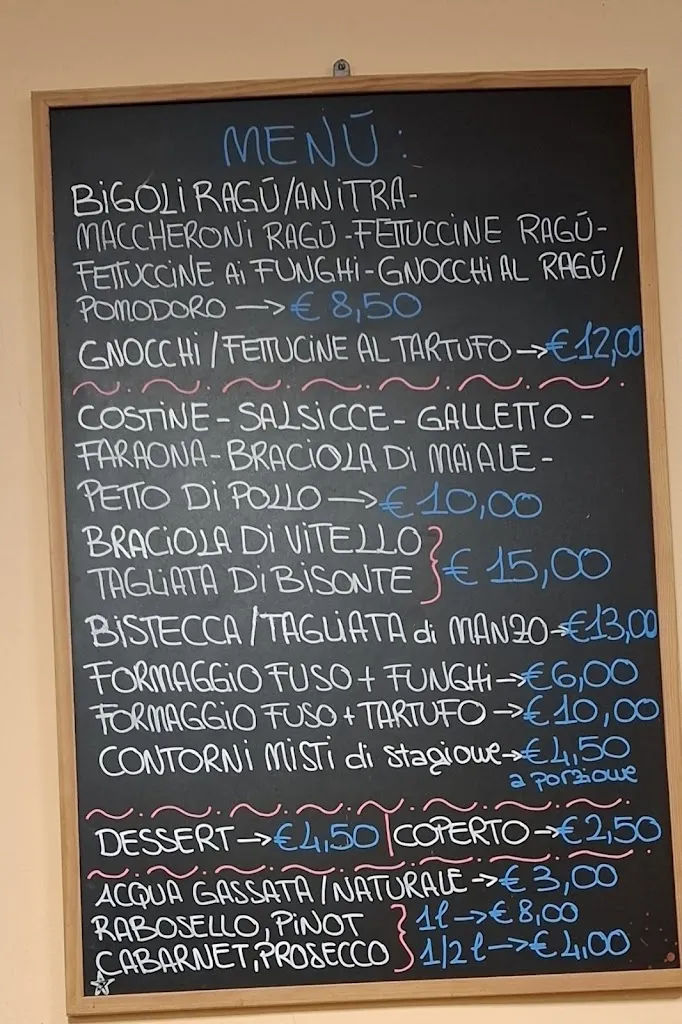 MENÚ:
BIGOLI RAGÚ/ANITRA-
MACCHERONI RAGÚ-FETTUCCINE RAGÚ-
FETTUCCINE Ai FUNGHi-GNOCCHi AL RAGÚ/
POMODORO → € 8,50
GNOCCHi/FETTUCINE AL TARTUFO → €12,00
COSTINE - SALSICCE - GALLETTO -
FARAONA - BRACiOLA Di MAiALE -
PETTO Di POLLO → € 10,00
BRACiOLA Di ViTELLO
TAGLiATA Di BiSONTE } € 15,00
BISTECCA/TAGLiATA di MANZO → €13,00
FORMAGGiO FUSO + FUNGHi → €6,00
FORMAGGiO FUSO + TARTUFO → € 10,00
CONTORNi MiSTi di stagione → €4,50
a porzione
DESSERT → €4,50 | COPERTO → €2,50
ACQUA GASSATA/NATURALE → € 3,00
RABOSELLO, PiNOT } 1l → € 8,00
CABARNET, PROSECCO 1/2 l → € 4,00